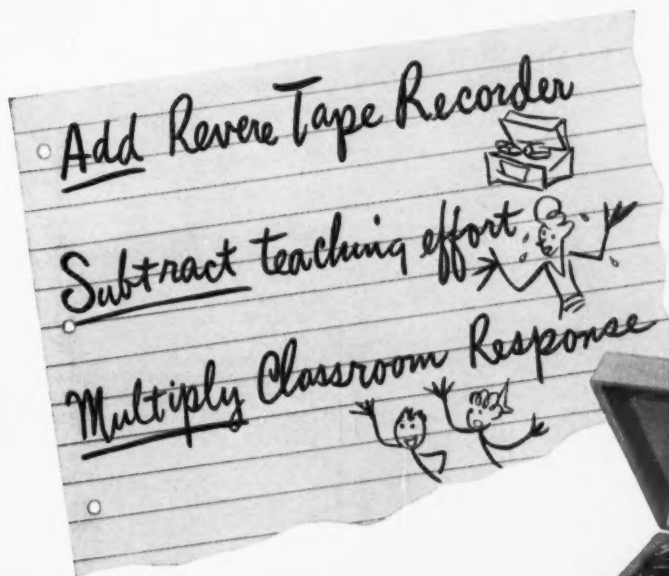 Add Revere Tape Recorder
Subtract teaching effort
Multiply Classroom Response